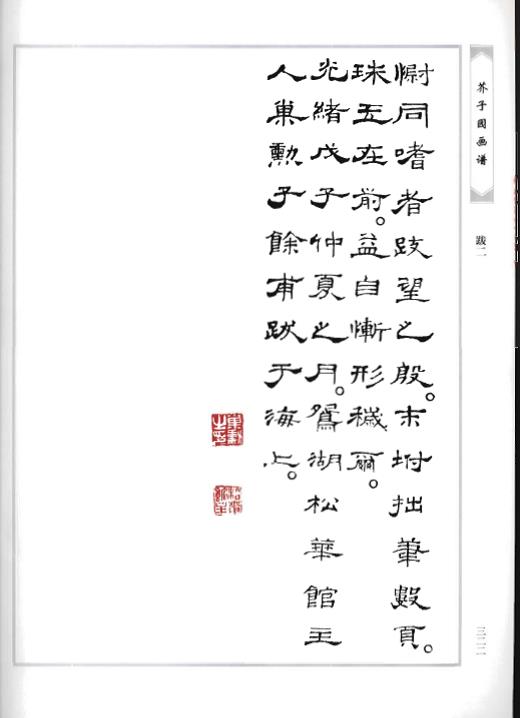 芥子園画谱
跋二
慰同嗜者跂望之殷。末坿拙筆數頁。
珠玉在前。益自慚形穢爾。
光緒戊子仲夏之月。鴛湖松華館主
人巢勳子餘甫跋于海上。
巢勳之印